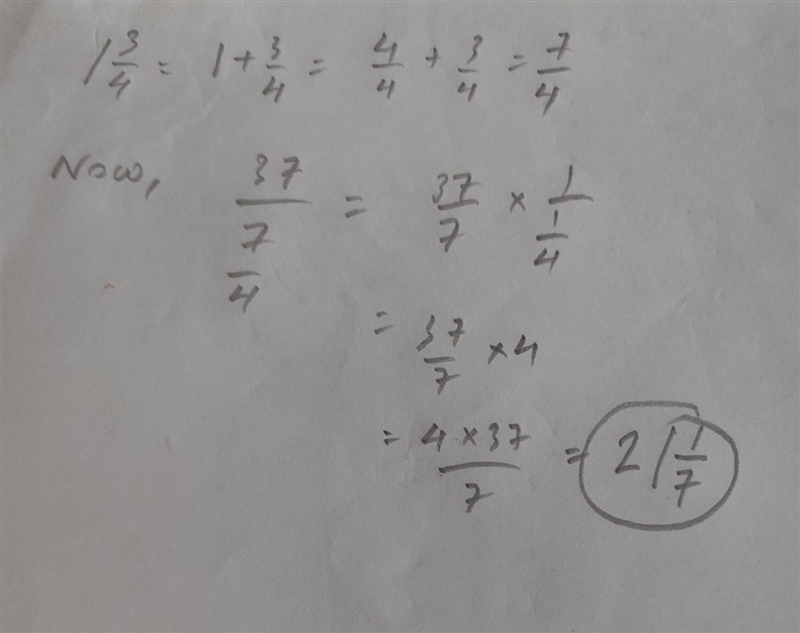 1 3/4 = 1 + 3/4 = 4/4 + 3/4 = 7/4
Now, 37/(7/4) = 37/7 × 1/(1/4)
= 37/7 × 4
= (4 × 37)/7 = 21 1/7